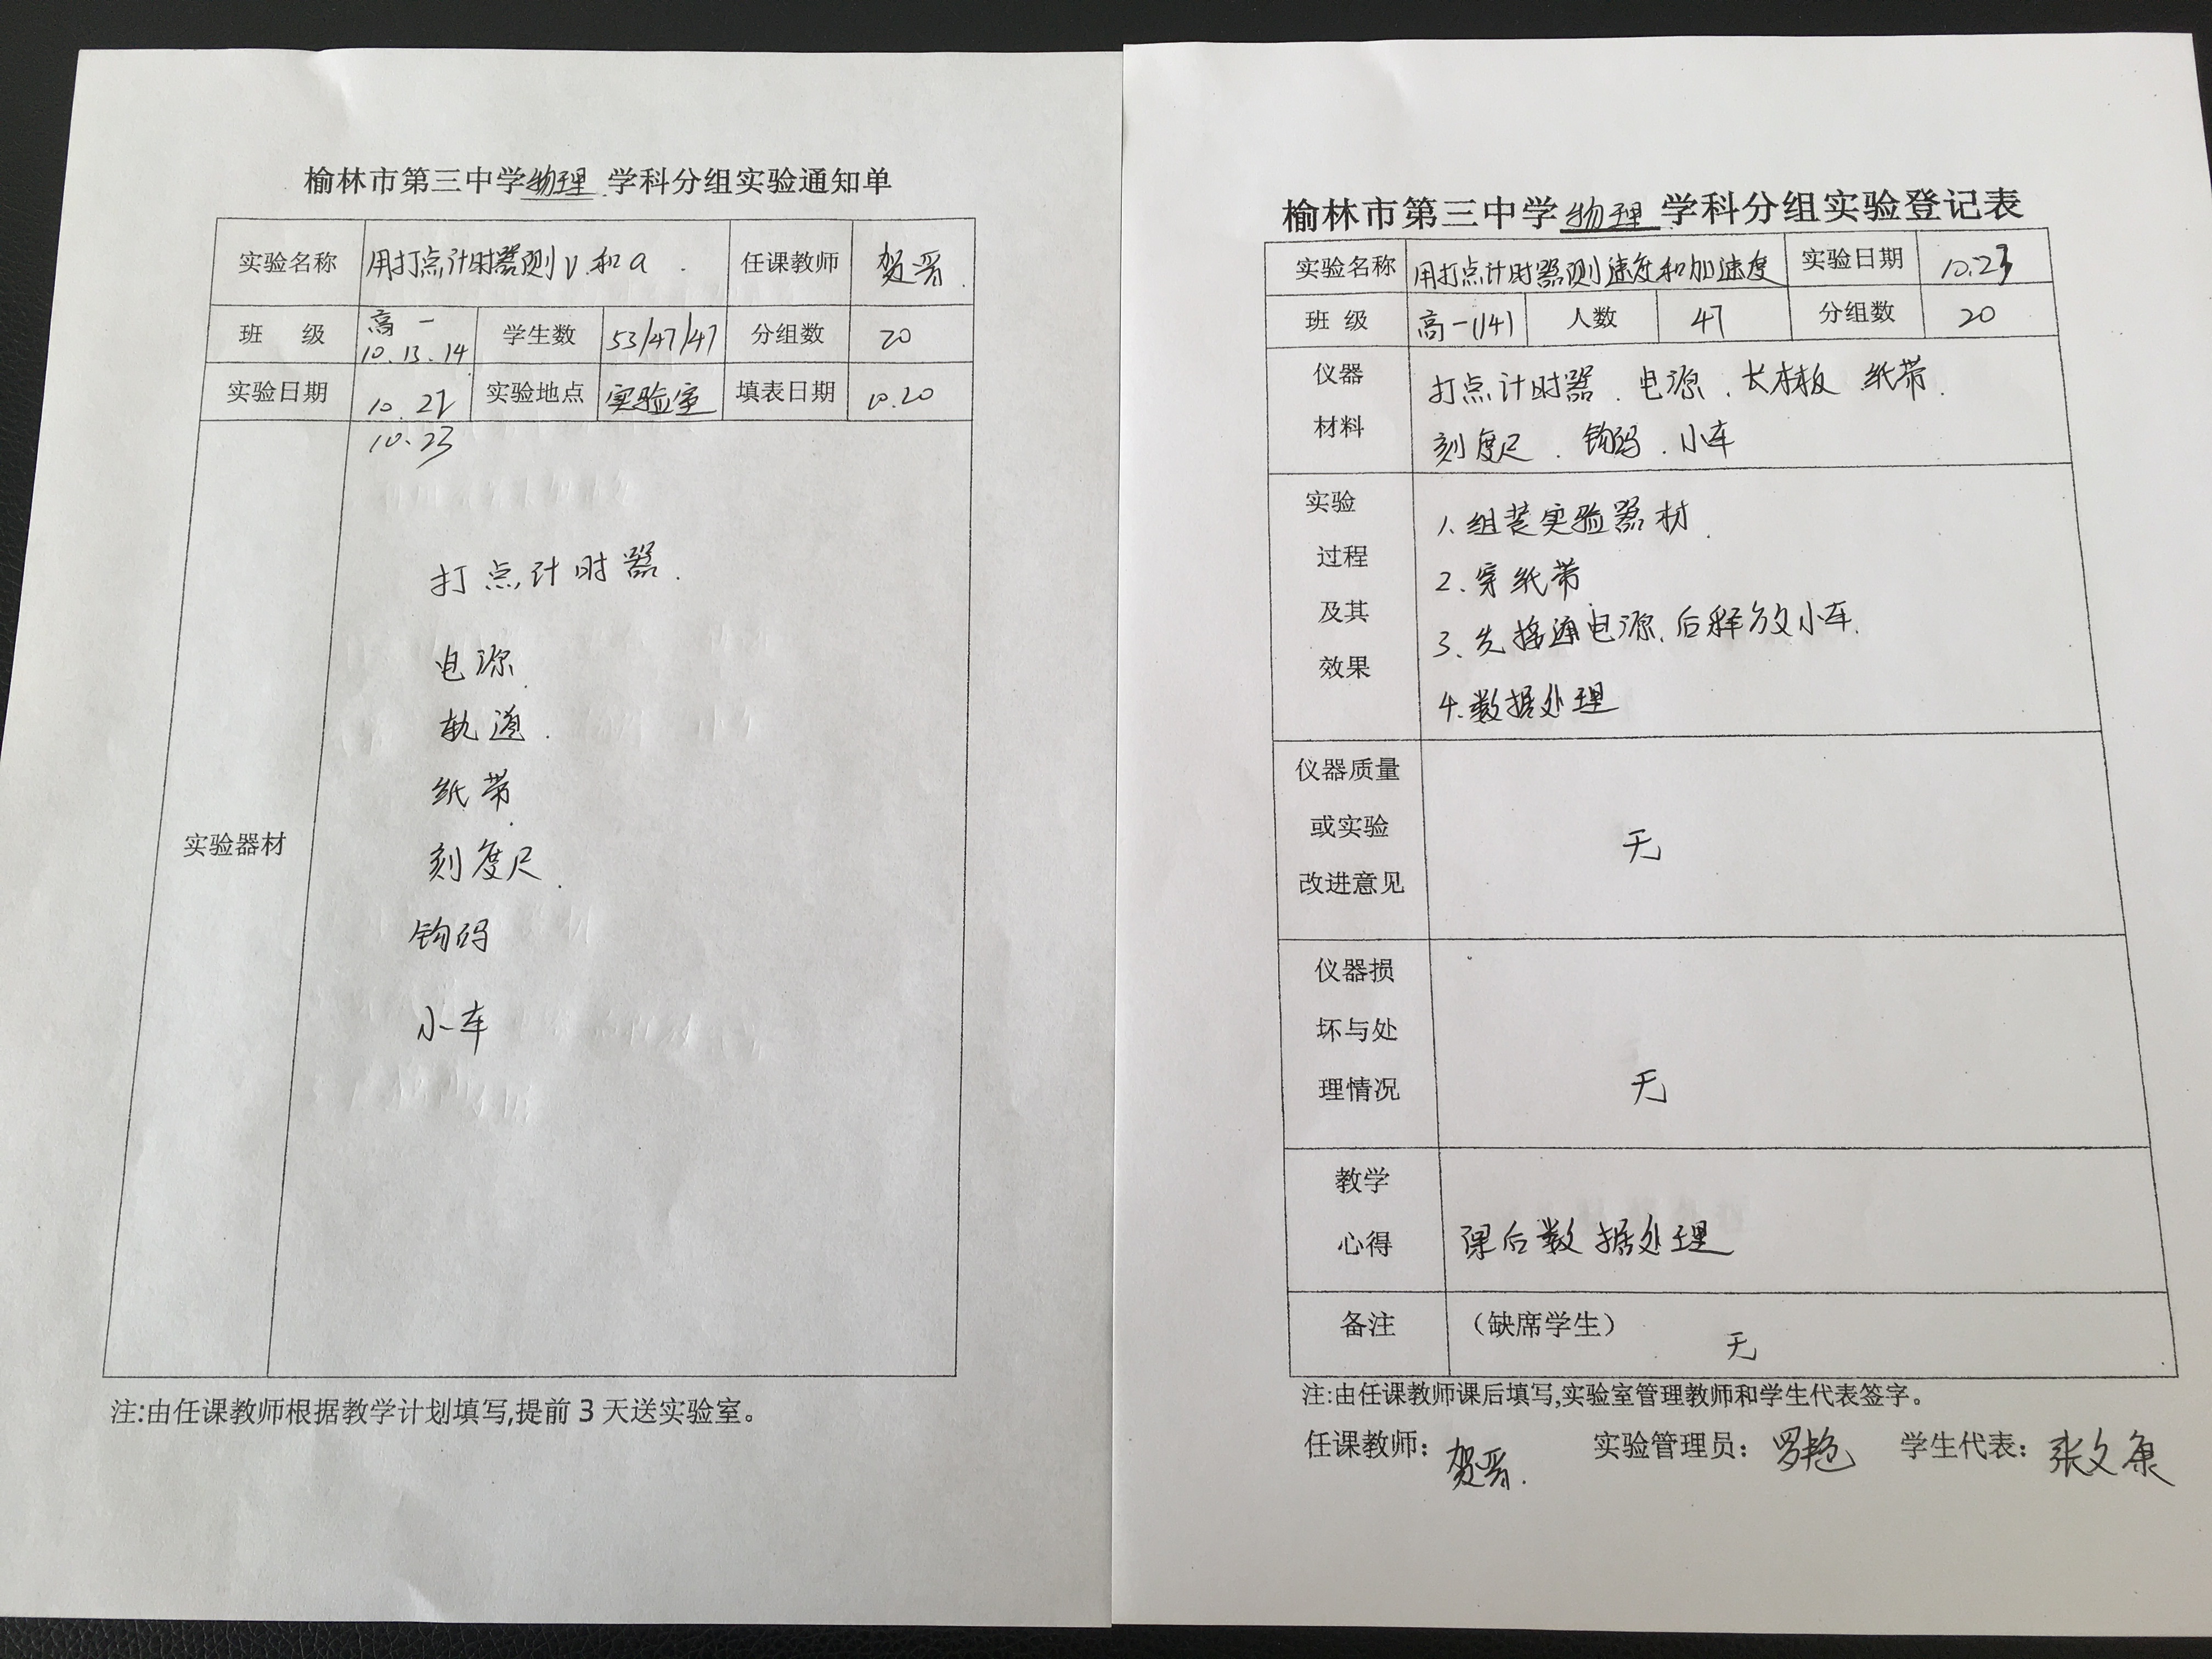 榆林市第三中学物理 学科分组实验通知单
实验名称 用打点计时器测v和a. 任课教师 贺晋.
班 级 高一 10.13.14 学生数 53/47/47 分组数 20
实验日期 实验地点 实验室 填表日期 10.20
10.23
实验器材
打点计时器.
电源.
轨道.
纸带.
刻度尺.
钩码
小车
注:由任课教师根据教学计划填写,提前3天送实验室。
榆林市第三中学物理学科分组实验登记表
实验名称 用打点计时器测速度和加速度 实验日期 10.23
班 级 高一(14) 人数 47 分组数 20
仪器材料
打点计时器.电源.长木板 纸带.
刻度尺.钩码.小车
实验过程及其效果
1.组装实验器材.
2.穿纸带
3.先接通电源.后释放小车.
4.数据处理
仪器质量或实验改进意见
无
仪器损坏与处理情况
无
教学心得
课后数据处理
备注 (缺席学生) 无
注:由任课教师课后填写,实验室管理教师和学生代表签字。
任课教师:贺晋. 实验管理员:罗艳 学生代表:张文康